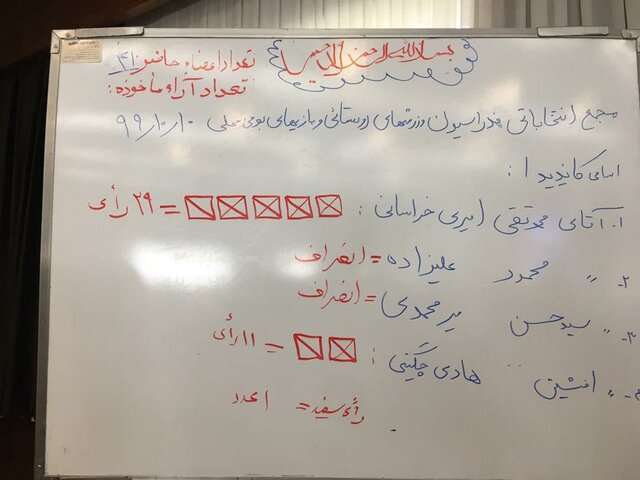 بسم الله الرحمن الرحیم
تعداد اعضاء حاضر: ۴۱
تعداد آراء ماخوذه:
مجمع انتخاباتی فدراسیون ورزشهای روستائی و بازیهای بومی محلی ۹۹/۱۰/۱۰
اسامی کاندیدا:
۱- آقای محمدتقی امیری خراسانی: = ۲۹ رأی
۲- " محمود علیزاده = انصراف
۳- " سیدحسن میرمحمدی = انصراف
۴- " افشین هادی چگینی: = ۱۱ رأی
رأی سفید = ۱ عدد